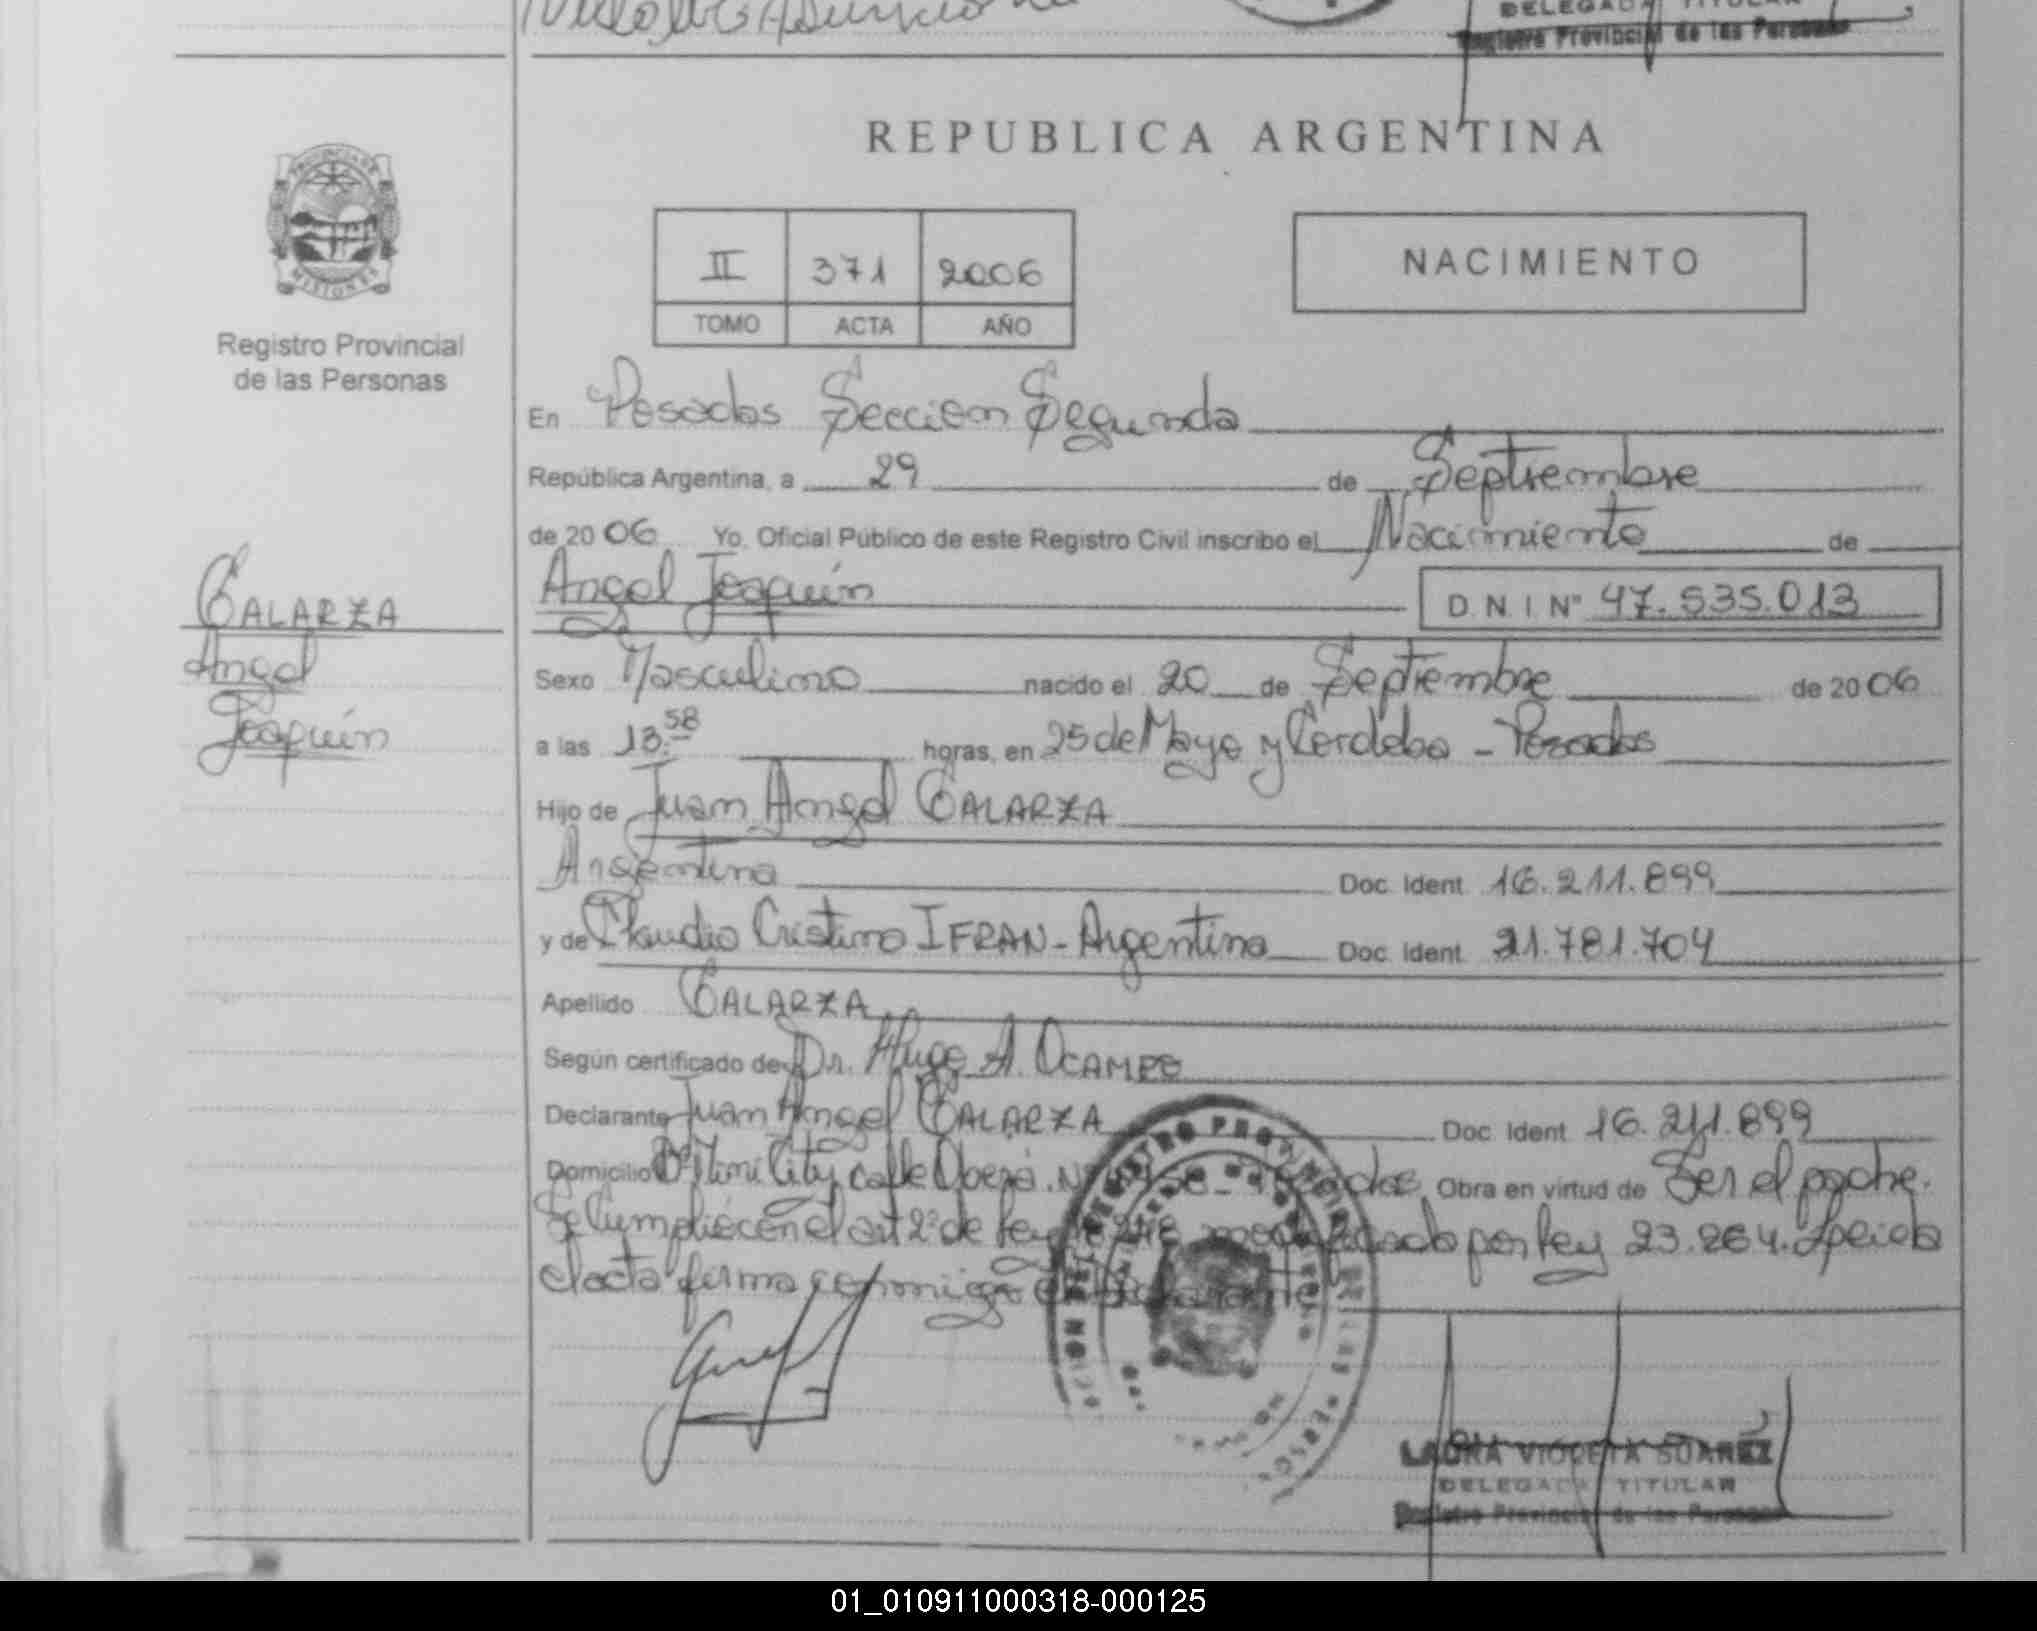 DELEGADA TITULAR
Registro Provincial de las Personas
PROVINCIA DE
MISIONES
Registro Provincial
de las Personas
REPUBLICA ARGENTINA
II 371 2006
TOMO ACTA AÑO
NACIMIENTO
En Posadas Sección Segunda
República Argentina, a 29 de Septiembre
de 2006 Yo, Oficial Público de este Registro Civil inscribo el Nacimiento de
GALARZA
Angel
Joaquín
Angel Joaquín D.N.I. Nº 47.535.013
Sexo Masculino nacido el 20 de Septiembre de 2006
a las 13:58 horas, en 25 de Mayo y Cordoba - Posadas
Hijo de Juan Angel GALARZA
Argentino Doc. Ident. 16.211.899
y de Claudia Cristina IFRAN - Argentina Doc. Ident. 21.781.704
Apellido GALARZA
Según certificado de Dr. Hugo A. OCAMPO
Declarante Juan Angel GALARZA Doc. Ident. 16.211.899
Domicilio Bº Mini City, calle Oberá. Nº Posadas Obra en virtud de Ser el padre.
Se Cumplió con el art 2º de Ley modificado por Ley 23.264. Leída
el acta firma conmigo el declarante
LAURA VIOLETA SUAREZ
DELEGADA TITULAR
Registro Provincial de las Personas
01_010911000318-000125